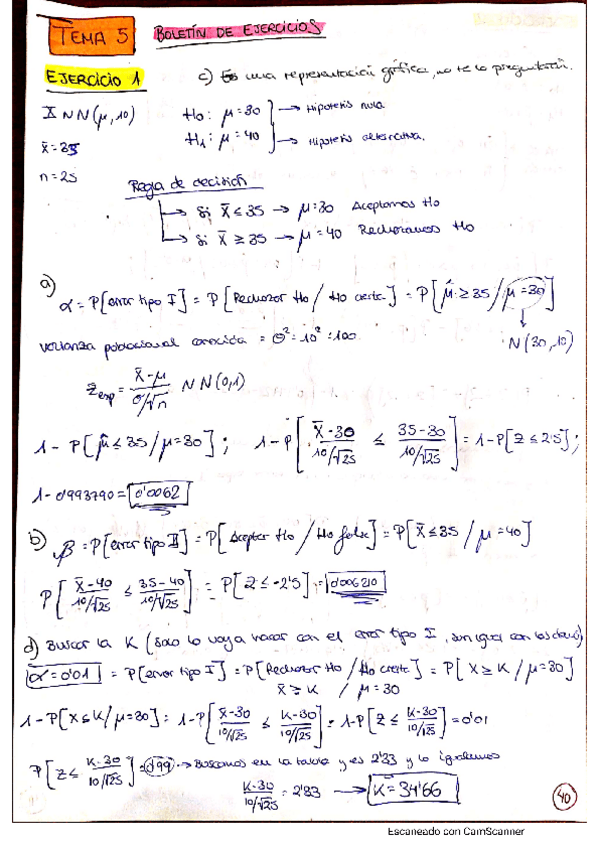 TEMA 5 BOLETÍN DE EJERCICIOS
EJERCICIO 1 c) Es una representación gráfica, no te lo preguntarán.
X ~ N(μ, 10) H₀: μ = 30 → Hipótesis nula
H₁: μ = 40 → Hipótesis alternativa.
x̄ = 35
n = 25
Regla de decisión
→ Si X̄ ≤ 35 → μ = 30 Aceptamos H₀
→ Si X̄ ≥ 35 → μ = 40 Rechazamos H₀
a)
α = P[error tipo I] = P[Rechazar H₀ / H₀ cierta] = P[μ̂ ≥ 35 / μ = 30]
varianza poblacional conocida = σ² = 10² = 100 N(30, 10)
Z exp = X̄ - μ / σ/√n ~ N(0,1)
1 - P[μ̂ ≤ 35 / μ = 30]; 1 - P[X̄ - 30 / 10/√25 ≤ 35 - 30 / 10/√25] = 1 - P[Z ≤ 2'5];
1 - 0'993790 = 0'0062
b) β = P[error tipo II] = P[Aceptar H₀ / H₀ falsa] = P[X̄ ≤ 35 / μ = 40]
P[X̄ - 40 / 10/√25 ≤ 35 - 40 / 10/√25] = P[Z ≤ -2'5] = 0'006210
d) Buscar la K (solo lo voy a hacer con el error tipo I,
α = 0'01 = P[error tipo I] = P[Rechazar H₀ / H₀ cierta] = P[X ≥ K / μ = 30]
X̄ ≥ K / μ = 30
1 - P[X ≤ K / μ = 30] = 1 - P[X̄ - 30 / 10/√25 ≤ K - 30 / 10/√25] = 1 - P[Z ≤ K - 30 / 10/√25] = 0'01
P[Z ≤ K - 30 / 10/√25] = 0'99 → Buscamos en la tabla y es 2'33 y lo igualamos
K - 30 / 10/√25 = 2'33 → K = 34'66
40
Escaneado con CamScanner